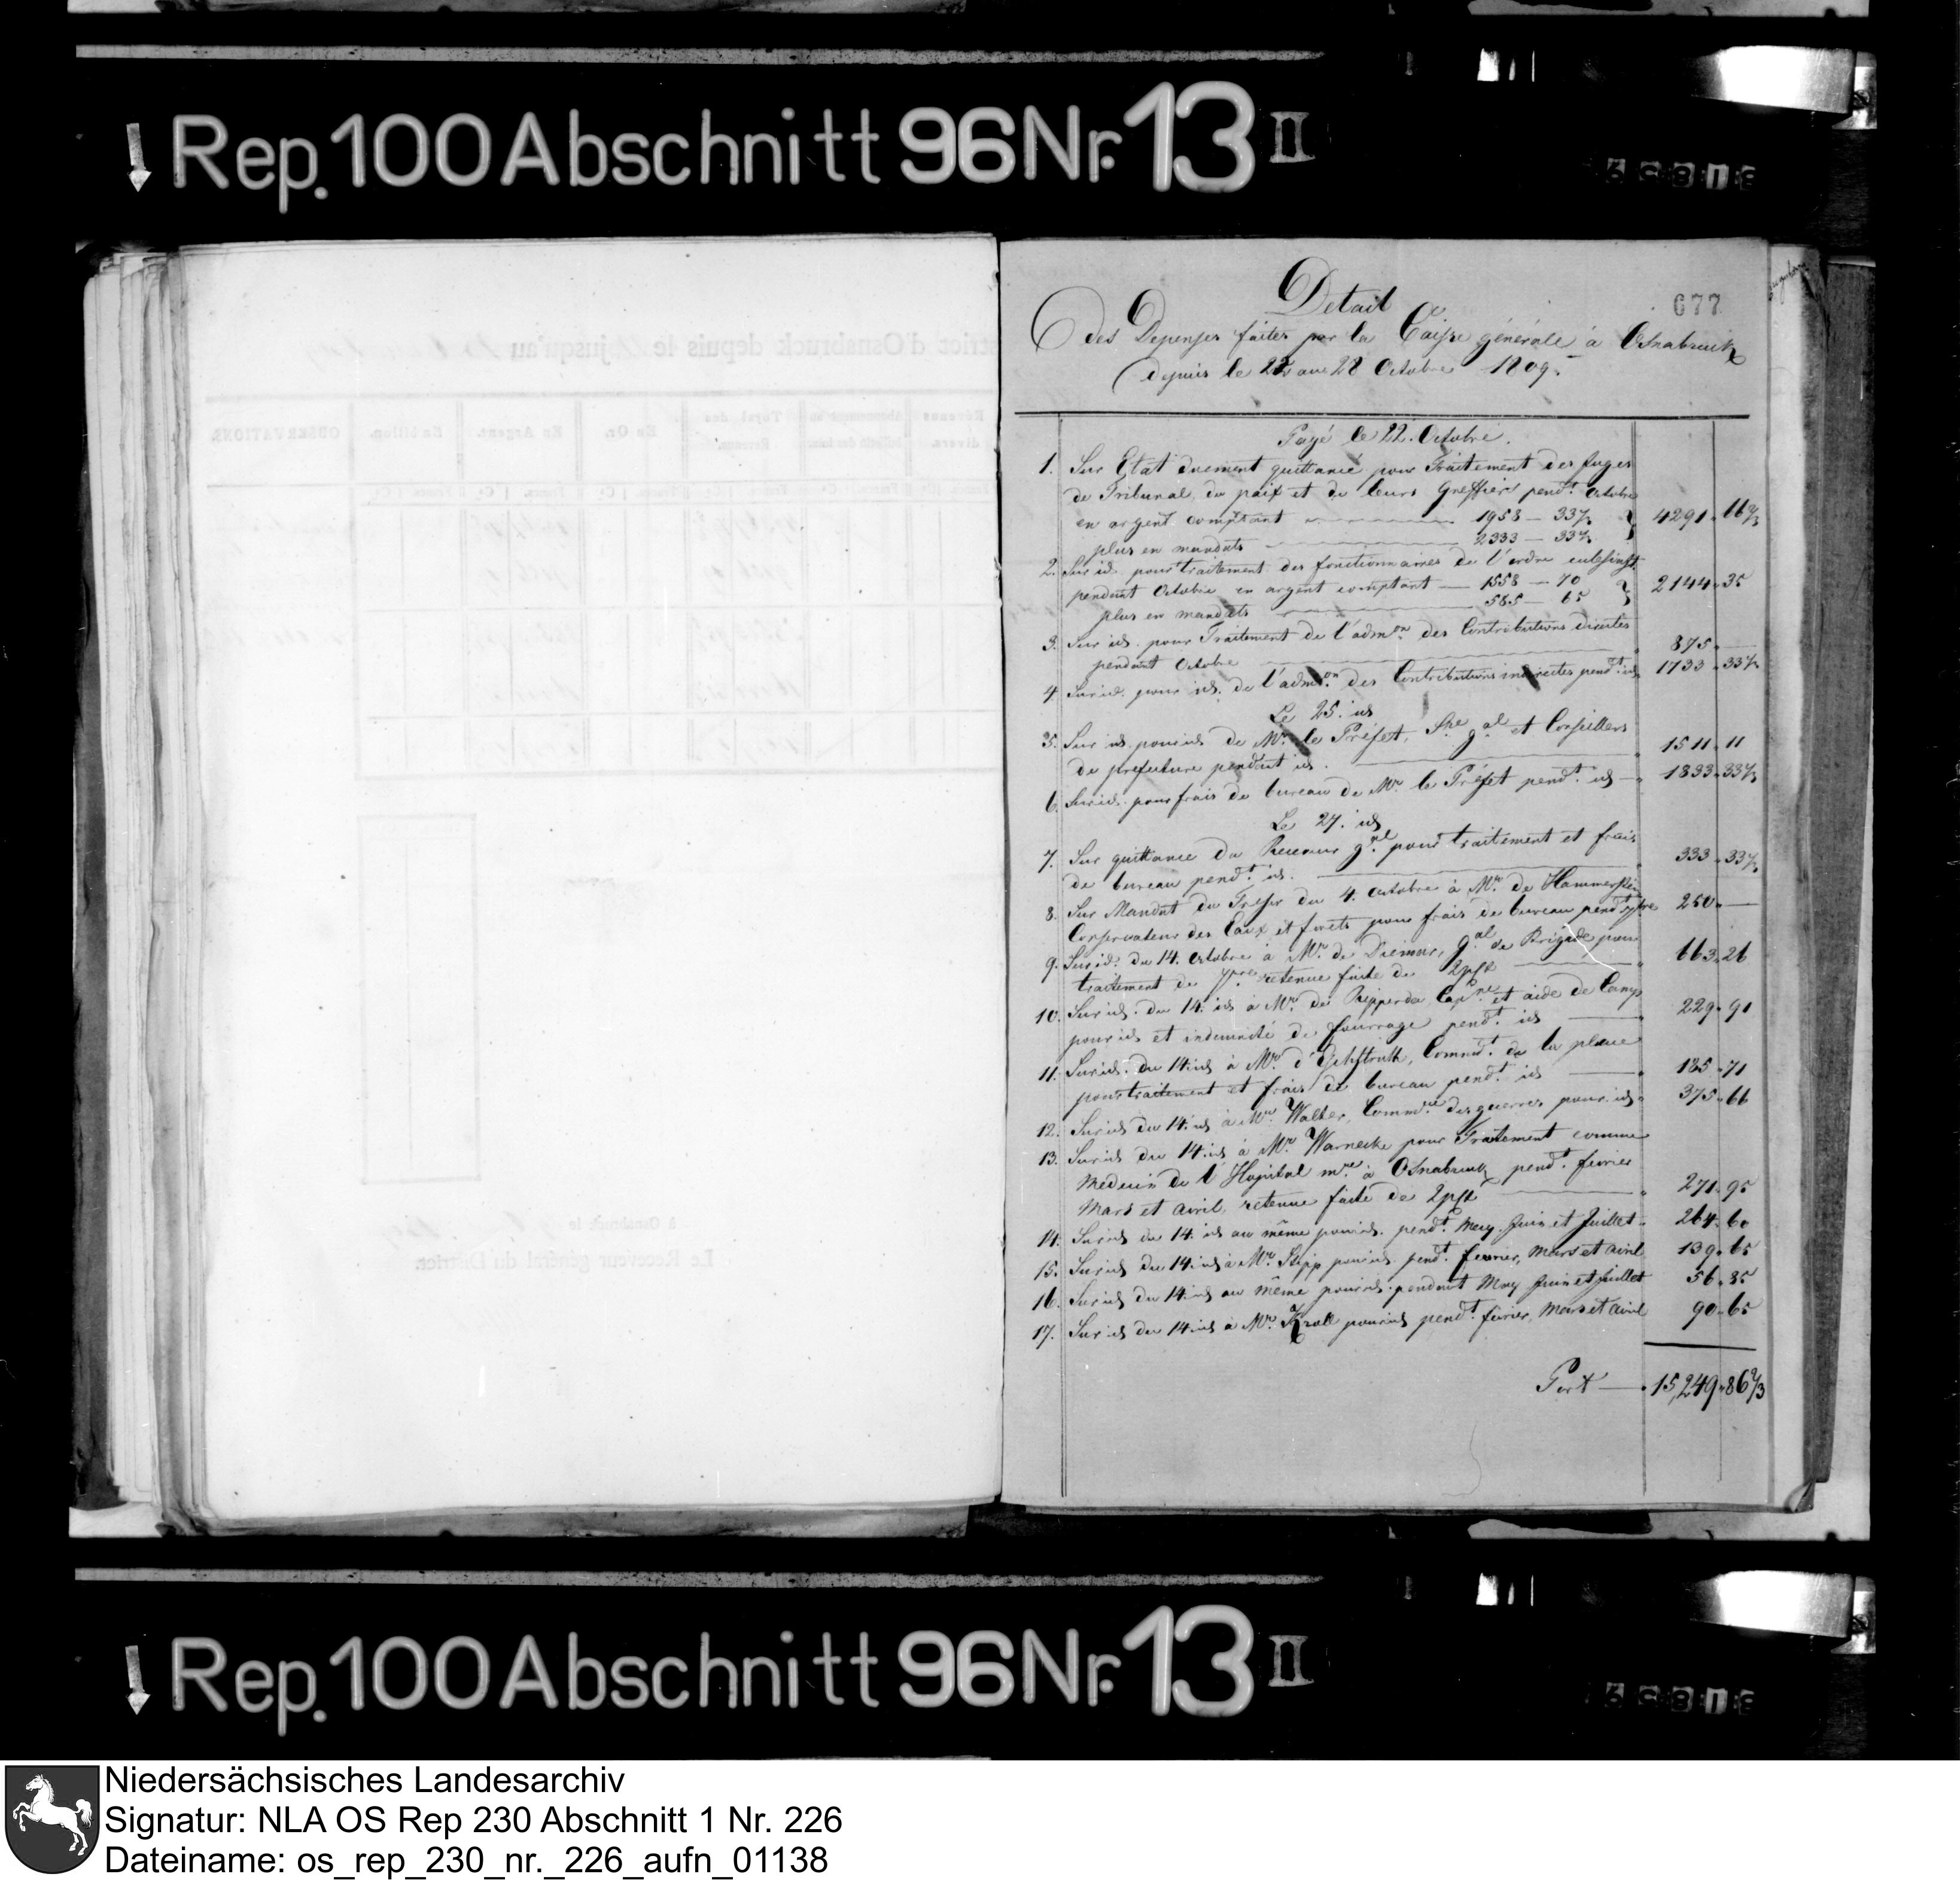 Rep. 100 Abschnitt 96 Nr. 13 II
677
Detail
des Depenses faites par la Caisse générale à Osnabruck
depuis le 22 au 28 Octobre 1809.
Payé le 22. Octobre.
1. Sur Etat duement quittancé pour Traitement des Juges
de Tribunal, de paix et de leurs Greffiers pend.t Octobre
en argent comptant — 1958 — 33 1/3 } 4291 " 66 2/3
plus en mandats — 2333 — 33 1/3
2. Sur id. pour traitement des fonctionnaires de l'ordre
pendant Octobre en argent comptant — 1558 — 70 } 2144 " 35
plus en mandats — 585 — 65
3. Sur id. pour Traitement de l'adm.on des Contributions directes
pendant Octobre — 875 " —
4. Sur id. pour id. de l'adm.on des Contributions indirectes pend.t id. 1733 " 33 1/3
Le 25. id.
5. Sur id. pour id. de Mr. le Préfet, g.al et Conseillers
de prefecture pendant id. — 1511 " 11
6. Sur id. pour frais de bureau de Mr. le Préfet pend.t id. — 1833 " 33 1/3
Le 27. id.
7. Sur quittance du Receveur g.al pour traitement et frais
de bureau pend.t id. — 333 " 33 1/3
8. Sur Mandat du Tresor du 4. Octobre à Mr. de Hammerstein
Conservateur des Eaux et forets pour frais de bureau pend.t 7bre 250 " —
9. Sur id. du 14. Octobre à Mr. de g.al de Brigade pour
traitement de 7bre. retenue faite de 2 p% — 663 " 26
10. Sur id. du 14. id. à Mr. de Ripperda, Cap.ne et aide de Camp
pour id. et indemnité de fourrage pend.t id. — 229 " 91
11. Sur id. du 14. id. à Mr. d'Eschstruth, Command.t de la place
pour traitement et frais de bureau pend.t id. — 185 " 71
12. Sur id. du 14. id. à Mr. Walter, Comm.re des guerres pour id. " 375 " 66
13. Sur id. du 14. id. à Mr. Warnecke pour Traitement comme
Medecin de l'Hopital m.re à Osnabruck pend.t fevrier
Mars et avril, retenue faite de 2 p% — 271 " 95
14. Sur id. du 14. id. au même pour id. pend.t May, Juin et Juillet — 264 " 60
15. Sur id. du 14. id. à Mr. Stipp pour id. pend.t fevrier, Mars et avril 139 " 65
16. Sur id. du 14. id. au même pour id. pendant May Juin et Juillet 56 " 35
17. Sur id. du 14. id. à Mr. Kroll pour id. pend.t fevrier, Mars et avril 90 " 65
Port — 15,249 " 86 2/3
Rep. 100 Abschnitt 96 Nr. 13 II
Niedersächsisches Landesarchiv
Signatur: NLA OS Rep 230 Abschnitt 1 Nr. 226
Dateiname: os_rep_230_nr._226_aufn_01138